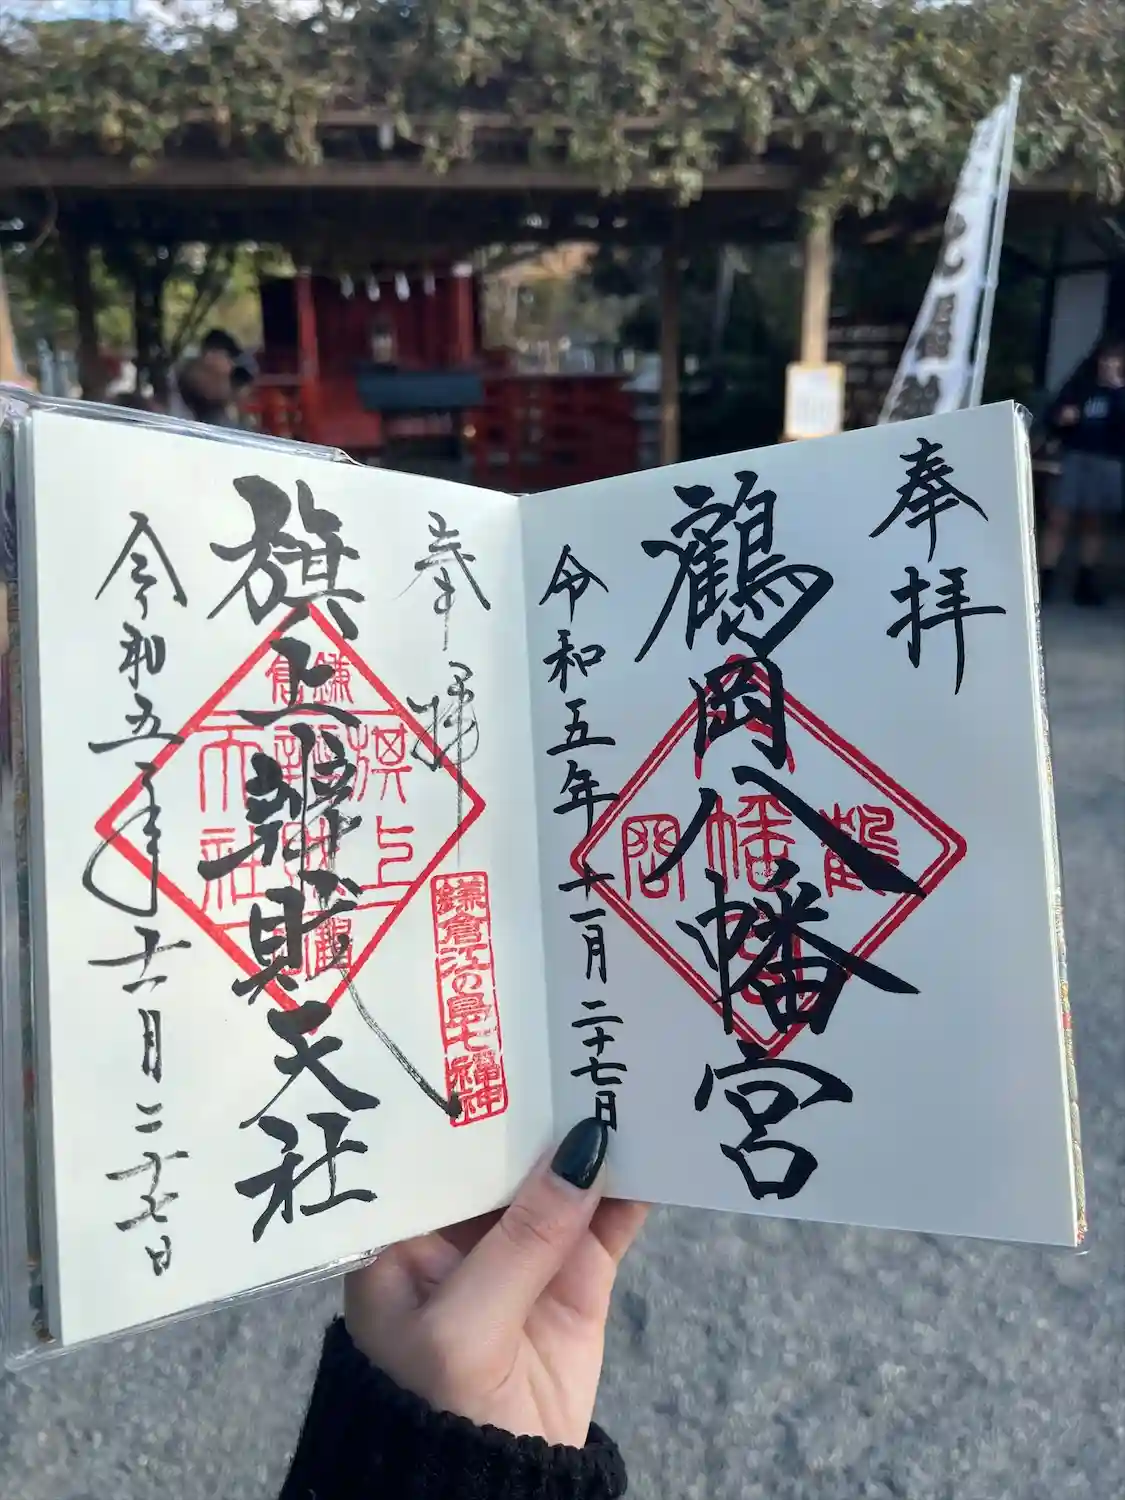 奉拝
鶴岡八幡宮
令和五年十一月二十七日
奉拝
鎌倉江の島七福神
旗上弁財天社
令和五年十一月二十七日